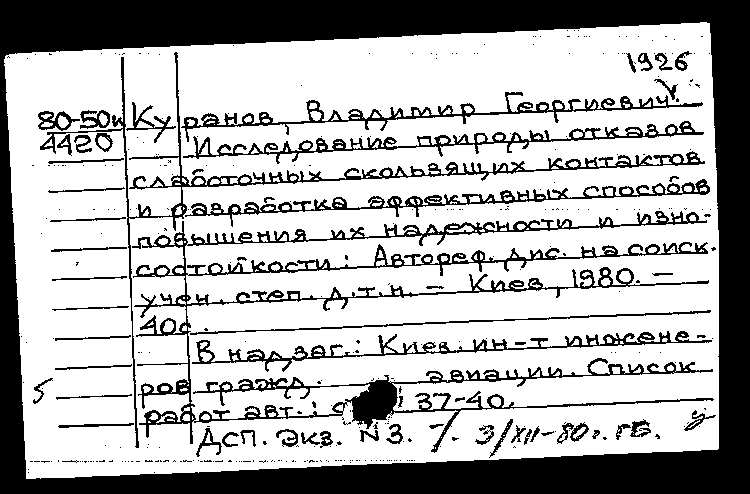 1926
80-50и Куранов, Владимир Георгиевич
4420 Исследование природы отказов
слаботочных скользящих контактов
и разработка эффективных способов
повышения их надежности и изно-
состойкости: Автореф. дис. на соиск.
учен. степ. д.т.н. — Киев, 1980. —
40с.
В надзаг.: Киев. ин-т инжене-
5 ров гражд. авиации. Список
работ авт.: с 37-40.
ДСП. Экз. N3. 3/XII-80г. ГБ.